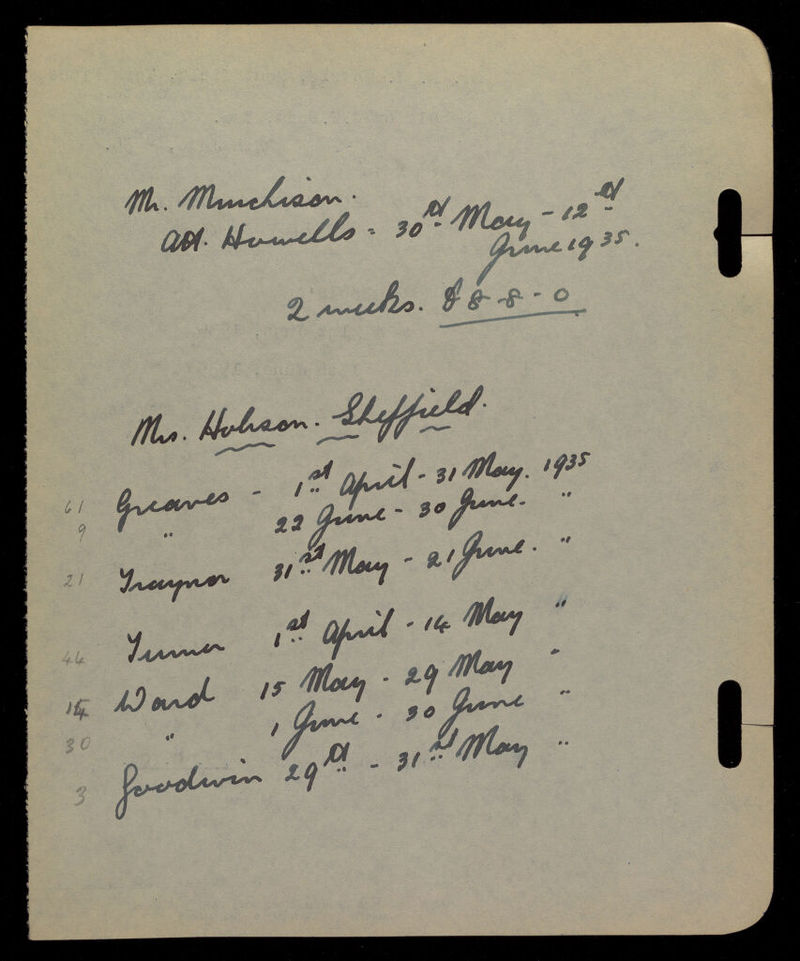 Mr. Murchison.
Howells = 30th May - 12th
June 1935.
2 weeks. £8-8-0
Mrs. Hobson. Sheffield.
61 Greaves - 1st April - 31 May. 1935
9 " 22 June - 30 June. "
21 Traynor 31st May - 21 June. "
44 Turner 1st April - 14 May "
Ward 15 May - 29 May "
30 " 1 June - 30 June "
3 Goodwin 29th - 31st May "